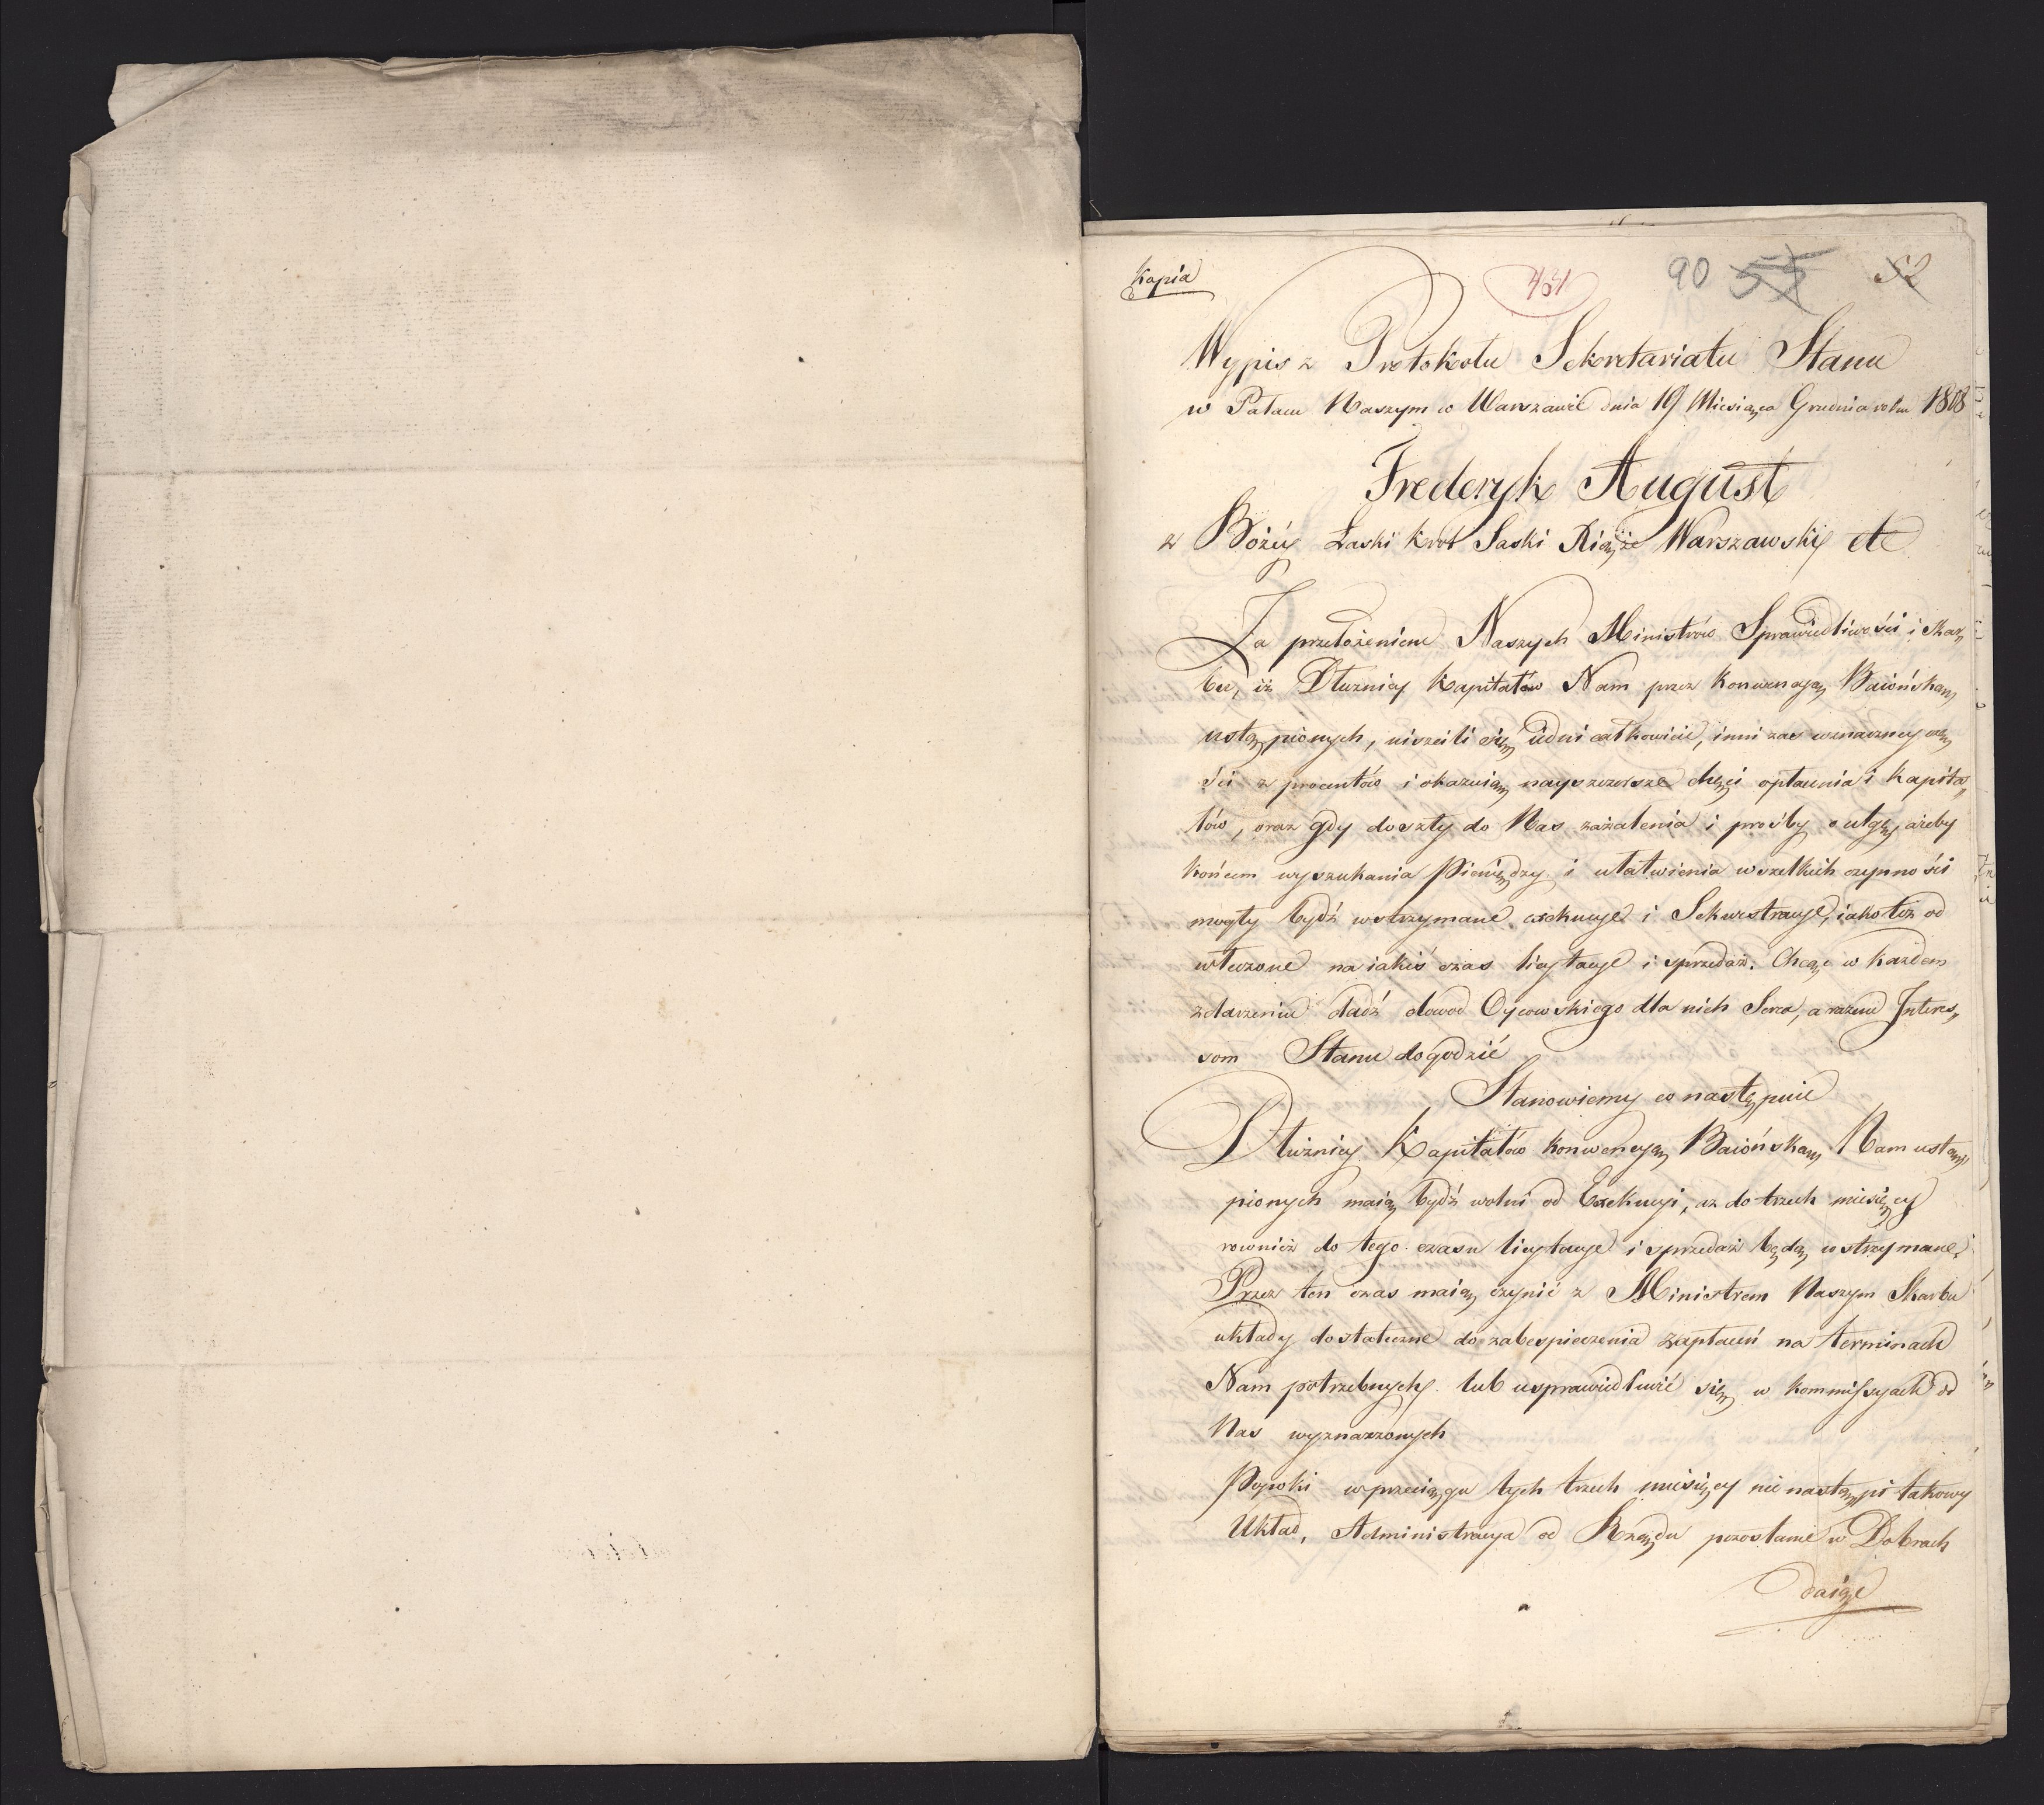 Kopia
90 55 52
Wypis z Protokołu Sekretariatu Stanu
w Pałacu Naszym w Warszawie dnia 19 Miesiąca Grudnia roku 1808
Frederyk August
z Bożey Łaski Krol Saski Xiąże Warszawsky etc
Za przełożeniem Naszych Ministrów Sprawiedliwości i Skar„
bu, iż Dłużnicy Kapitałów Nam przez Konwencyą Baiońską
ustąpionych, uiścili się iedni całkowicie, inni zas wznaczney czę
ści z procentów i okazuią nayszczersze chęci opłacenia i Kapita„
łów, oraz gdy doszły do Nas zażalenia i prośby o ulgę, ażeby
końcem wyszukania Pieniędzy i ułatwienia wszelkich czynności
mogły bydź wstrzymane exekucye i Sekwestracye, iako też od
włeczone na iakiś czas licytacye i sprzedaż. Chcąc w każdem
zdarzeniu dadź dowod Oycowskiego dla nich Serca, a razem Interes„
som Stanu dogodzić
Stanowiemy co następuie
Dłużnicy Kapitałów Konwencyą Baiońską Nam ustą„
pionych maią bydź wolni od Exekucyi, az do trzech miesięcy
rownież do tego czasu licytacye i sprzedaż będą wstrzymane.
Przez ten czas maią czynić z Ministrem Naszym Skarbu
układy dostateczne do zabespieczenia zapłaceń na terminach
Nam potrzebnych lub usprawiedliwić się w Kommissyach od
Nas wyznaczonych
Pepoki wprzeciągu tych trzech miesięcy nie nastąpi takowy
Układ, Administracya od Rządu pozostanie w Dobrach
daige